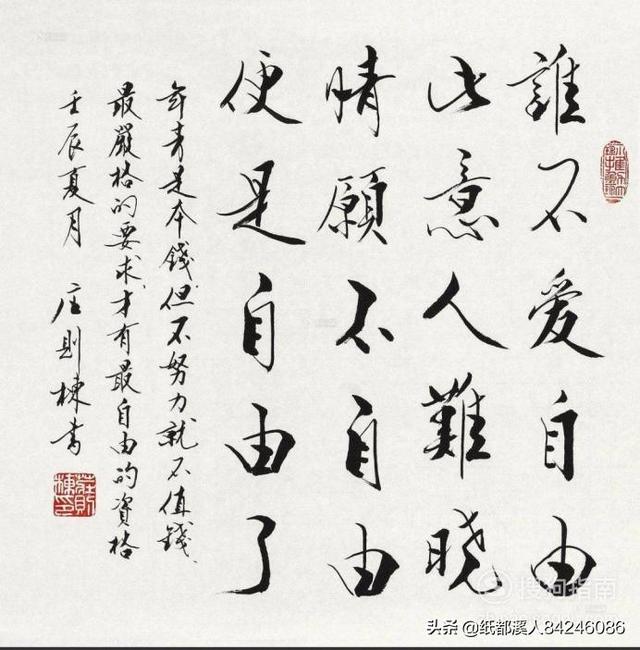 誰不爱自由
此意人難晓
情願不自由
便是自由了
年青是本錢但不努力就不值錢、
最嚴格的要求才有最自由的資格
壬辰夏月 庄則棟书
莊則棟印
搜狗指南
头条 @纸都溪人84246086